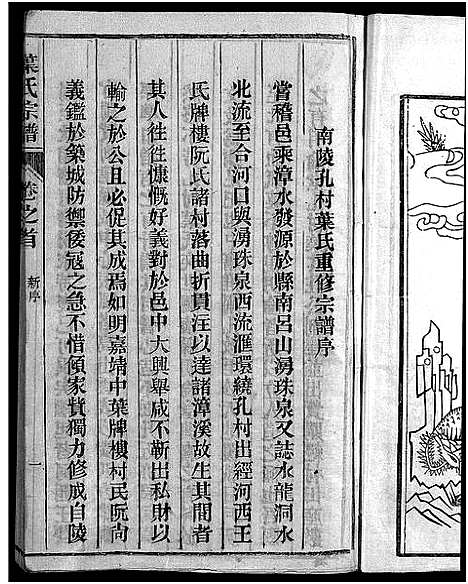 南陵孔村葉氏重修宗譜序
嘗稽邑乘漳水發源於縣南呂山湧珠泉又誌水龍洞水
北流至合河口與湧珠泉西流滙環繞孔村出經河西王
氏牌樓阮氏諸村落曲折貫注以達諸漳溪故生其間者
其人徃徃慷慨好義對於邑中大興舉咸不靳出私財以
輸之於公且必促其成焉如明嘉靖中葉牌樓村民阮尚
義鑑於築城防禦倭寇之急不惜傾家貲獨力修成自陵
葉氏宗譜
卷之首
新序
一